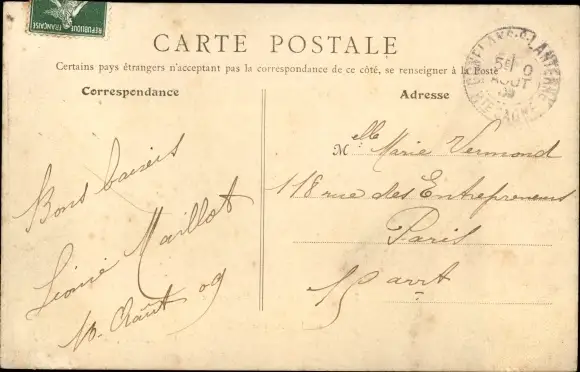 REPUBLIQUE FRANÇAISE
CARTE POSTALE
Certains pays étrangers n'acceptant pas la correspondance de ce côté, se renseigner à la Poste
Correspondance
Adresse
Bons baisers
Léonie Maillot
10 Août 09
Melle Marie Vermond
118 rue des Entrepreneurs
Paris
15 arrt
AOUT